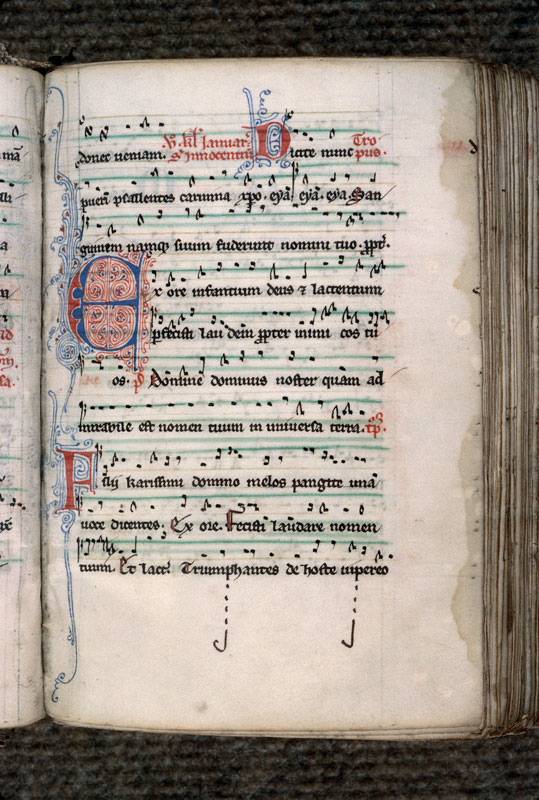 donec ueniam. V. kł Januar. Sᵗ Innocentiū Dicite nunc Tropus.
pueri psallentes carmina xp̄o. eyā. eyā. eya San
guinem namq; suum fuderunt nomini tuo. ꝓpt̄.
Ex ore infantium deus ⁊ lactentium
ꝑfecisti lau dem ꝓpter inimi cos tu
os. p̄s Domine dominus noster quam ad
mirabile est nomen tuum in uniuersa terra. tp̄.
Filij karissimi domino melos pangite unā
uoce dicentes. Ex ore. Fecisti laudare nomen
tuum. Et lact̄. Triumphantes de hoste uipereo